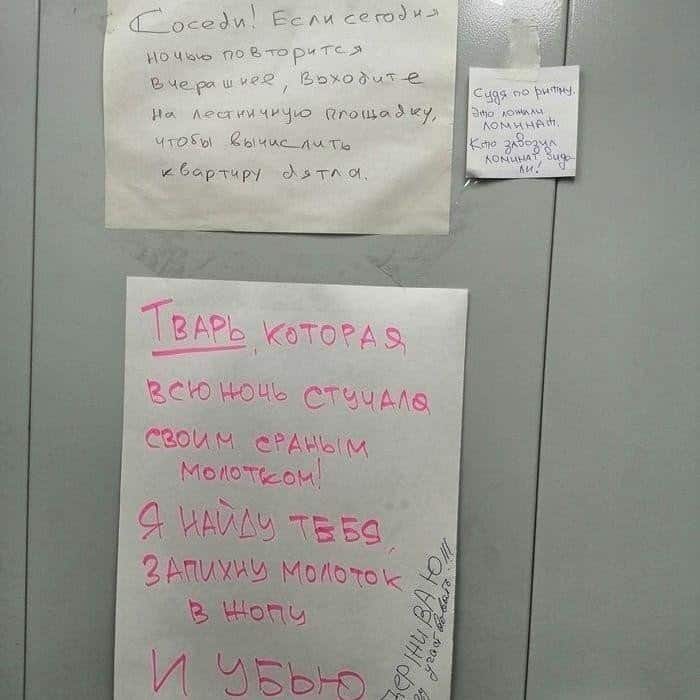 Соседи! Если сегодня
ночью повторится
вчерашнее, выходите
на лестничную площадку,
чтобы вычислить
квартиру дятла.
Судя по ритму.
Это ложали
ломинат.
Кто завозил
ломинат, вида-
ли?
Тварь, которая
всю ночь стучала
своим сраным
молотком!
Я найду тебя,
запихну молоток
в жопу
и убью